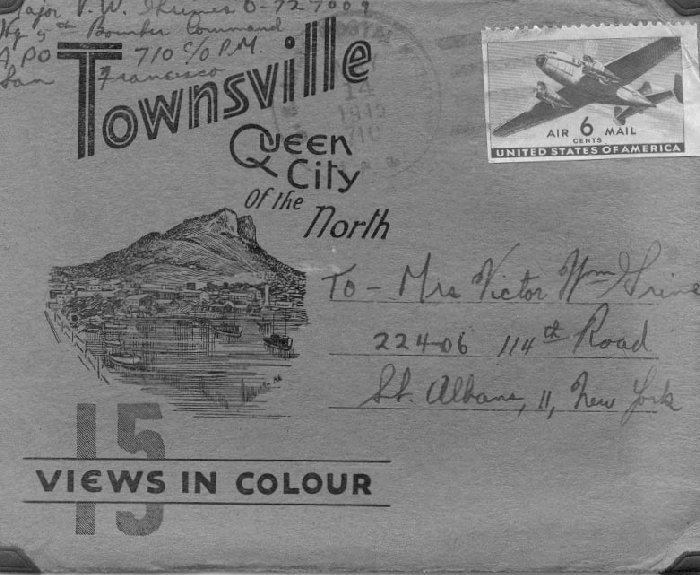 Major V. W.
Hq 5th Bomber Command
A.P.O 710 c/o P.M.
San Francisco
Townsville
Queen
City
Of the
North
14
AIR 6 MAIL
CENTS
UNITED STATES OF AMERICA
To - Mrs Victor Wm
224-06 114th Road
St. Albans, 11, New York
15
VIEWS IN COLOUR